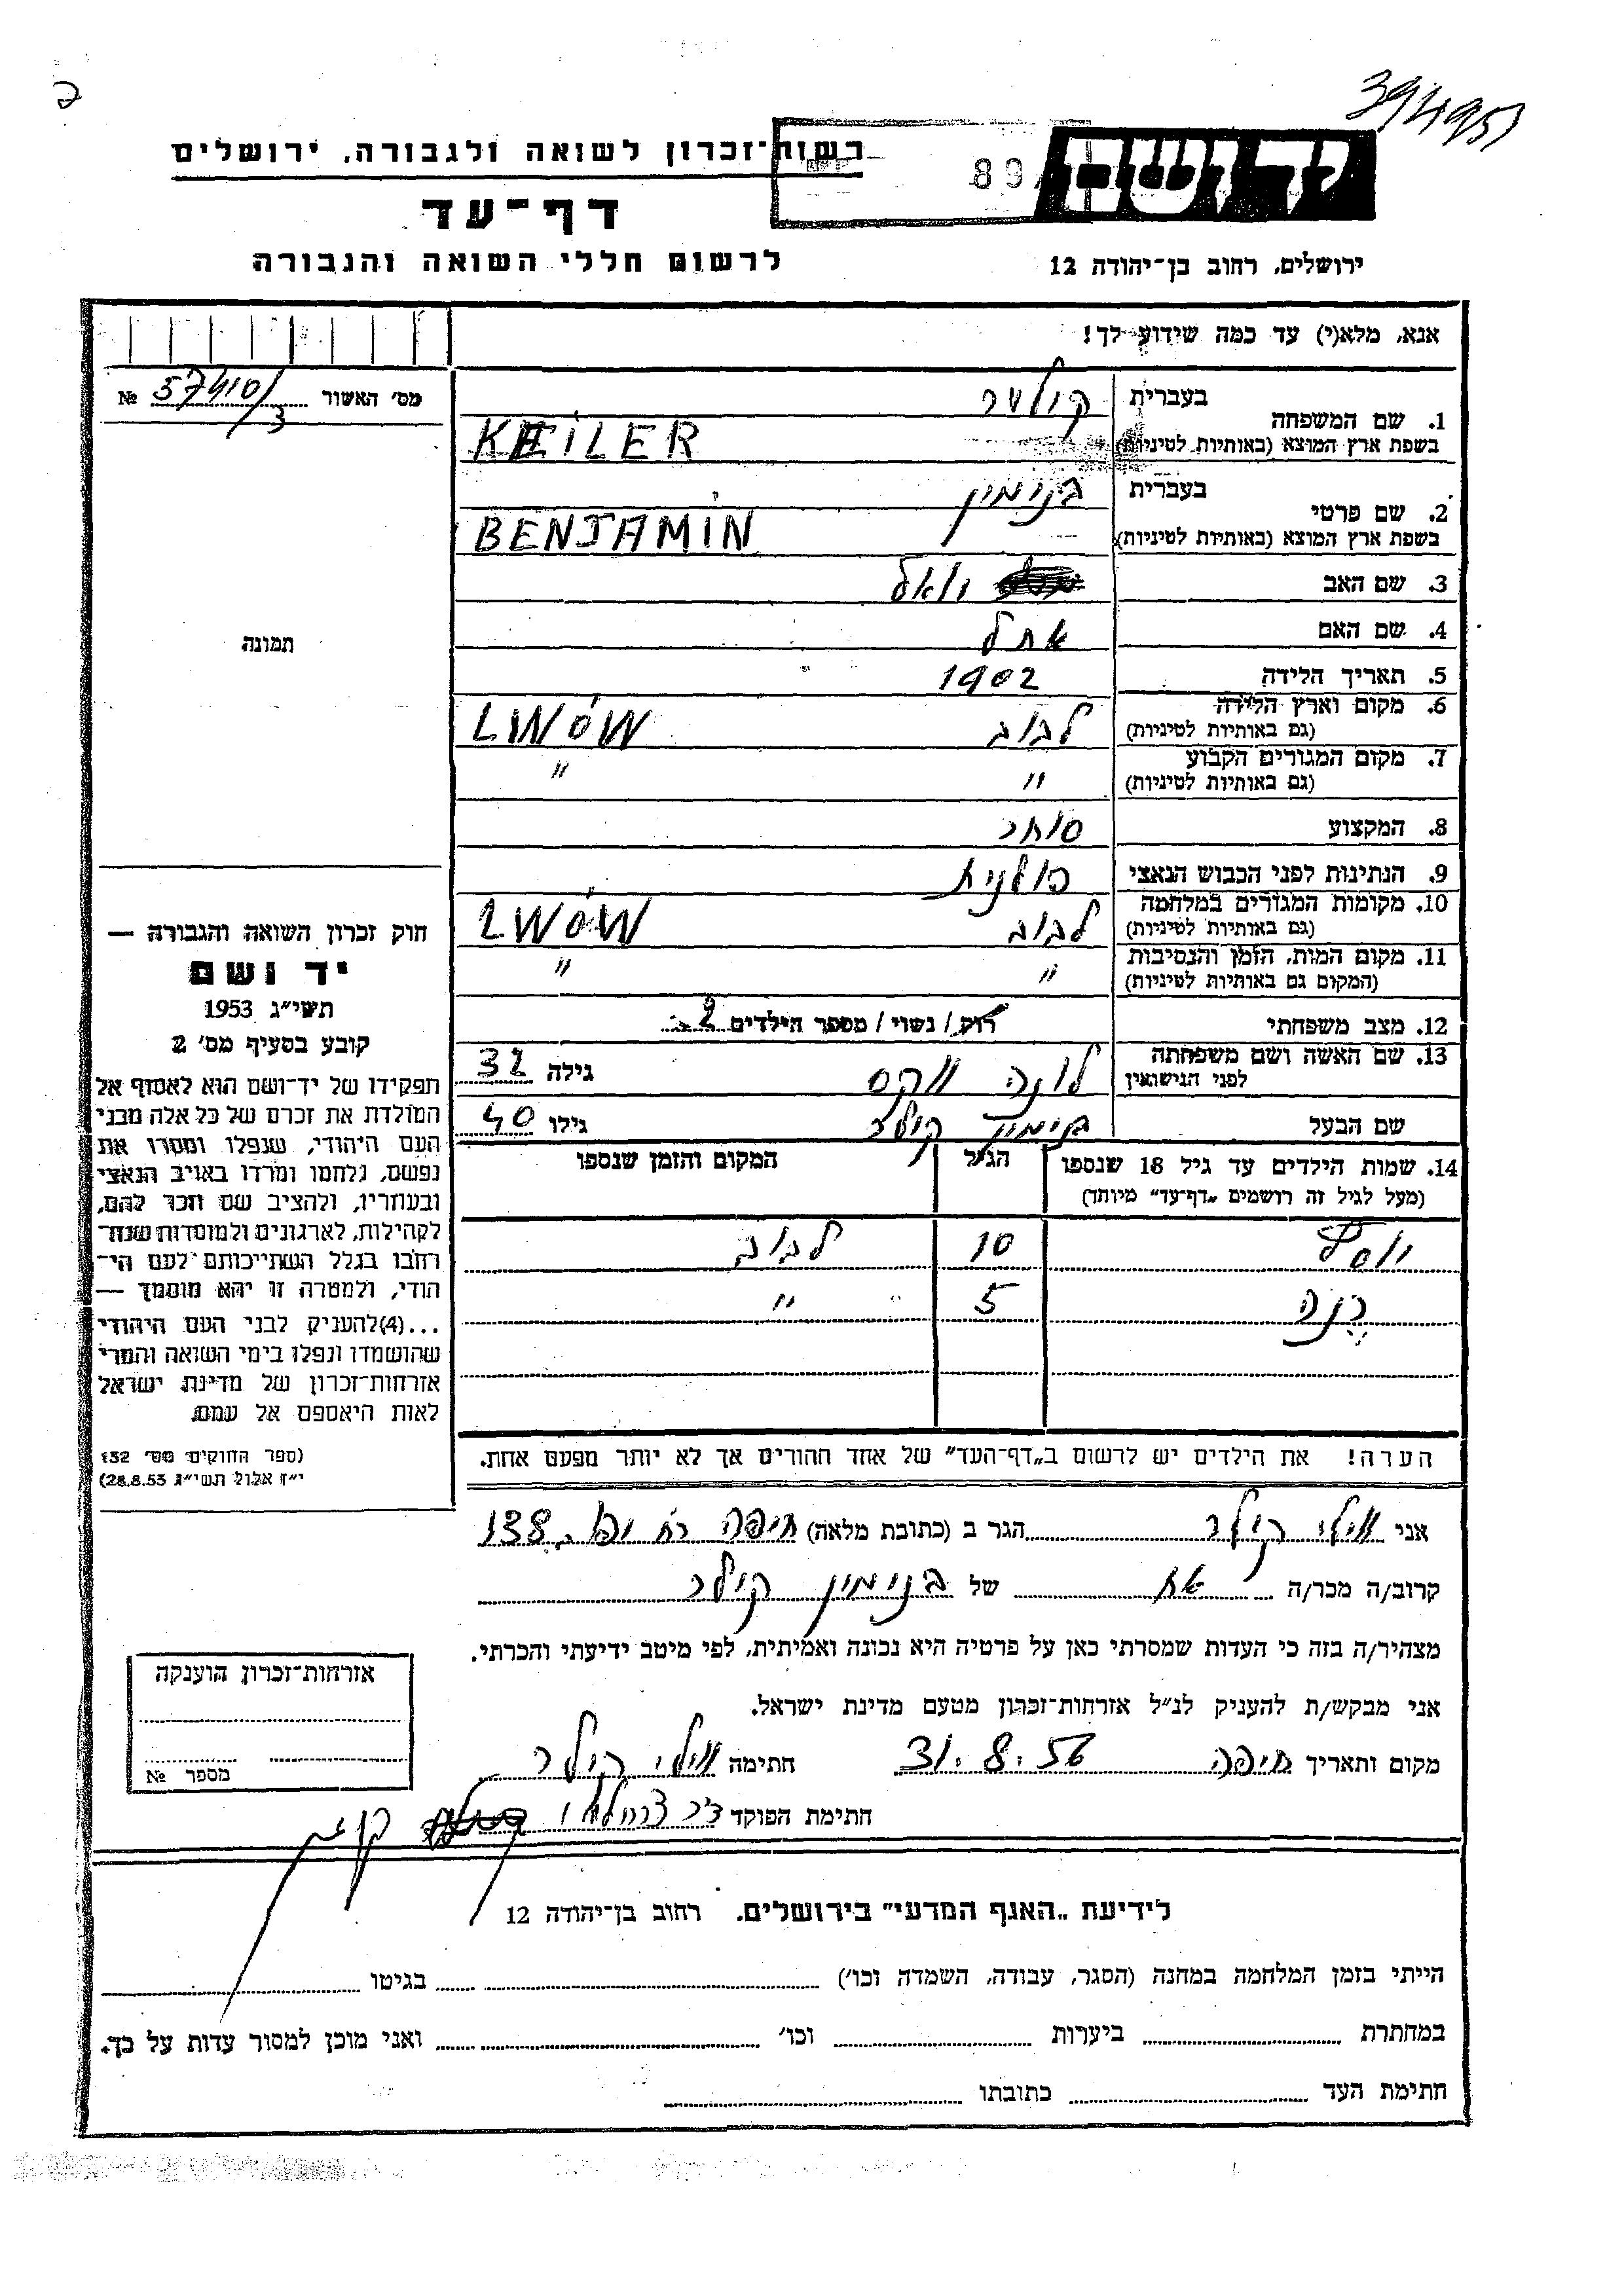 394951
רשות־זכרון לשואה ולגבורה, ירושלים
89
דף־עד
לרשום חללי השואה והגבורה
ירושלים, רחוב בן־יהודה 12
אנא, מלא(י) עד כמה שידוע לך!
מס' האשור 57410/3 №
1. שם המשפחה
בעברית
בשפת ארץ המוצא (באותיות לטיניות) KEILER
2. שם פרטי
בעברית בנימין
בשפת ארץ המוצא (באותיות לטיניות) BENJAMIN
3. שם האב יואל
4. שם האם
5. תאריך הלידה 1902
6. מקום וארץ הלידה לבוב LWÓW
(גם באותיות לטיניות)
7. מקום המגורים הקבוע " "
(גם באותיות לטיניות)
8. המקצוע סוחר
9. הנתינות לפני הכבוש הנאצי פולנית
10. מקומות המגורים במלחמה לבוב LWÓW
(גם באותיות לטיניות)
11. מקום המות, הזמן והנסיבות " "
(המקום גם באותיות לטיניות)
12. מצב משפחתי רוק / נשוי / מספר הילדים 2
13. שם האשה ושם משפחתה לונה ווקס גילה 32
לפני הנישואין
שם הבעל בנימין קילר גילו 40
14. שמות הילדים עד גיל 18 שנספו הגיל המקום והזמן שנספו
(מעל לגיל זה רושמים „דף־עד" מיוחד)
יוסף 10 לבוב
רנה 5 "
הערה! את הילדים יש לרשום ב„דף־העד" של אחד ההורים אך לא יותר מפעם אחת.
תמונה
חוק זכרון השואה והגבורה —
יד ושם
תשי״ג 1953
קובע בסעיף מס' 2
תפקידו של יד־ושם הוא לאסוף אל
המולדת את זכרם של כל אלה מבני
העם היהודי, שנפלו ומסרו את
נפשם, נלחמו ומרדו באויב הנאצי
ובעוזריו, ולהציב שם וזכר להם,
לקהילות, לארגונים ולמוסדות שנח־
רבו בגלל השתייכותם לעם הי־
הודי, ולמטרה זו יהא מוסמך —
...(4)להעניק לבני העם היהודי
שהושמדו ונפלו בימי השואה והמרי
אזרחות־זכרון של מדינת ישראל
לאות היאספם אל עמם.
(ספר החוקים מס' 132
י״ז אלול תשי״ג 28.8.53)
אני ווילי קילר הגר ב (כתובת מלאה) חיפה רח' יפו 138
קרוב/ה מכר/ה אח של בנימין קילר
מצהיר/ה בזה כי העדות שמסרתי כאן על פרטיה היא נכונה ואמיתית, לפי מיטב ידיעתי והכרתי.
אני מבקש/ת להעניק לנ״ל אזרחות־זכרון מטעם מדינת ישראל.
מקום ותאריך חיפה 31.8.56 חתימה ווילי קילר
חתימת הפוקד
אזרחות־זכרון הוענקה
מספר №
לידיעת „האגף המדעי" בירושלים. רחוב בן־יהודה 12
הייתי בזמן המלחמה במחנה (הסגר, עבודה, השמדה וכו') בגיטו
במחתרת ביערות וכו' ואני מוכן למסור עדות על כך.
חתימת העד כתובתו